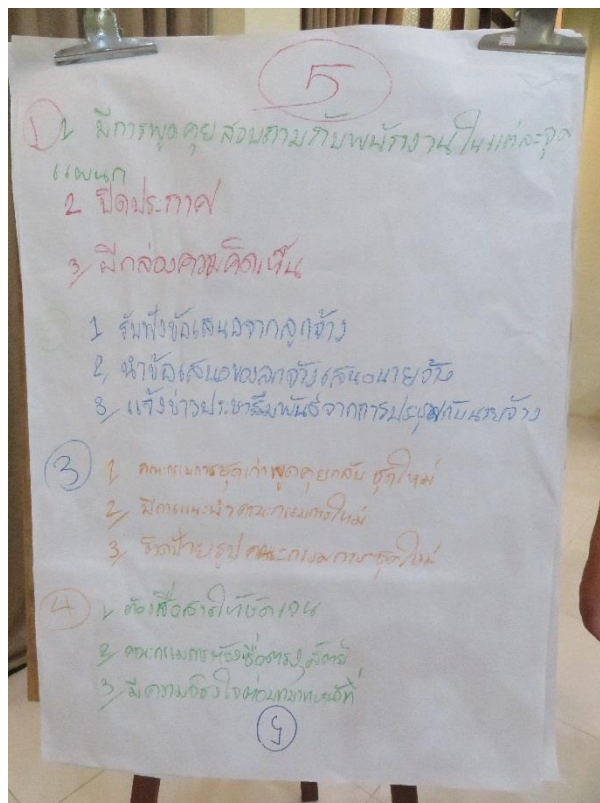 5
① 1 มีการพูดคุยสอบถามกับพนักงานในแต่ละจุด
แผนก
2 ปิดประกาศ
3/ มีกล่องความคิดเห็น
1 รับฟังข้อเสนอจากลูกจ้าง
2, นำข้อเสนอของลูกจ้างเสนอนายจ้าง
3/ แจ้งข่าวประชาสัมพันธ์จากการประชุมกับนายจ้าง
③ 1 คณะกรรมการชุดเก่าพูดคุยกับ ชุดใหม่
2/ มีการแนะนำคณะกรรมการใหม่
3/ ป้ายรูปคณะกรรมการชุดใหม่
④ 1, ต้องสื่อสารให้ชัดเจน
2/ คณะกรรมการต้องซื่อตรงสุจริต
3/ มีความจริงใจต่อบทบาทหน้าที่